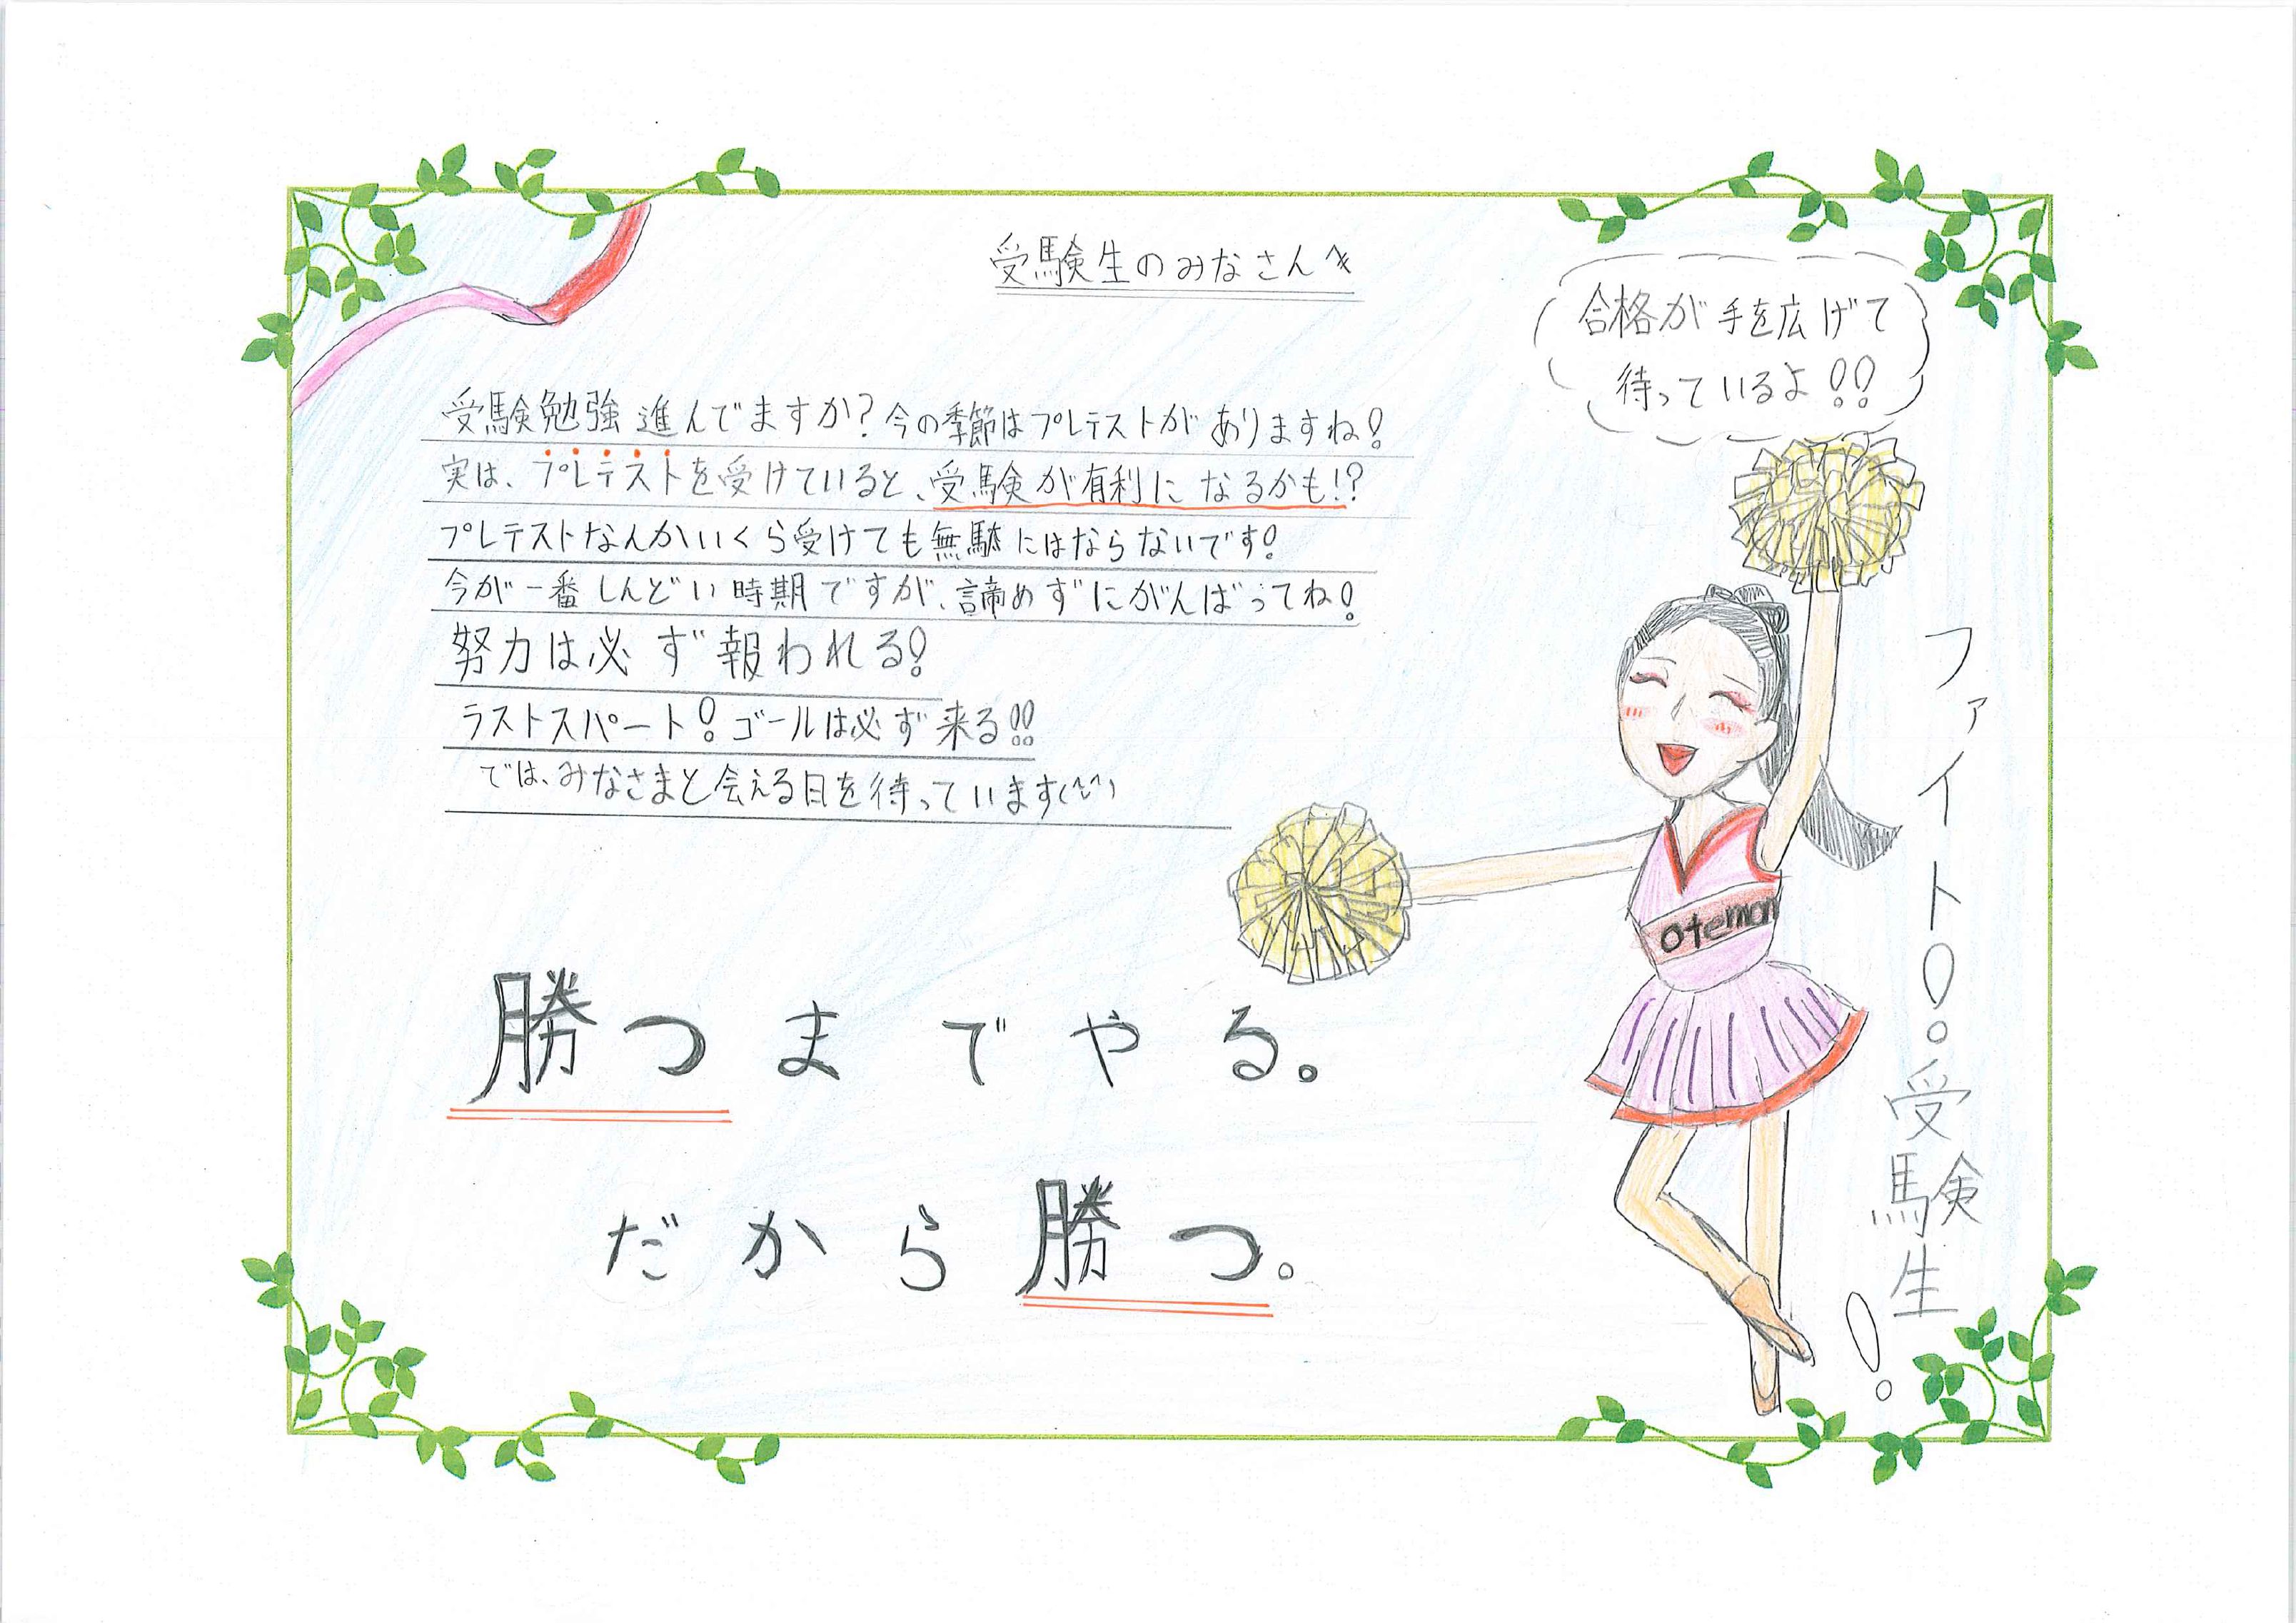 受験生のみなさんへ
合格が手を広げて
待っているよ!!
受験勉強進んでますか?今の季節はプレテストがありますね!
実は、プレテストを受けていると、受験が有利になるかも!?
プレテストなんかいくら受けても無駄にはならないです!
今が一番しんどい時期ですが、諦めずにがんばってね!
努力は必ず報われる!
ラストスパート!ゴールは必ず来る!!
では、みなさまと会える日を待っています(^^)
勝つまでやる。
だから勝つ。
otemon
ファイト!受験生!